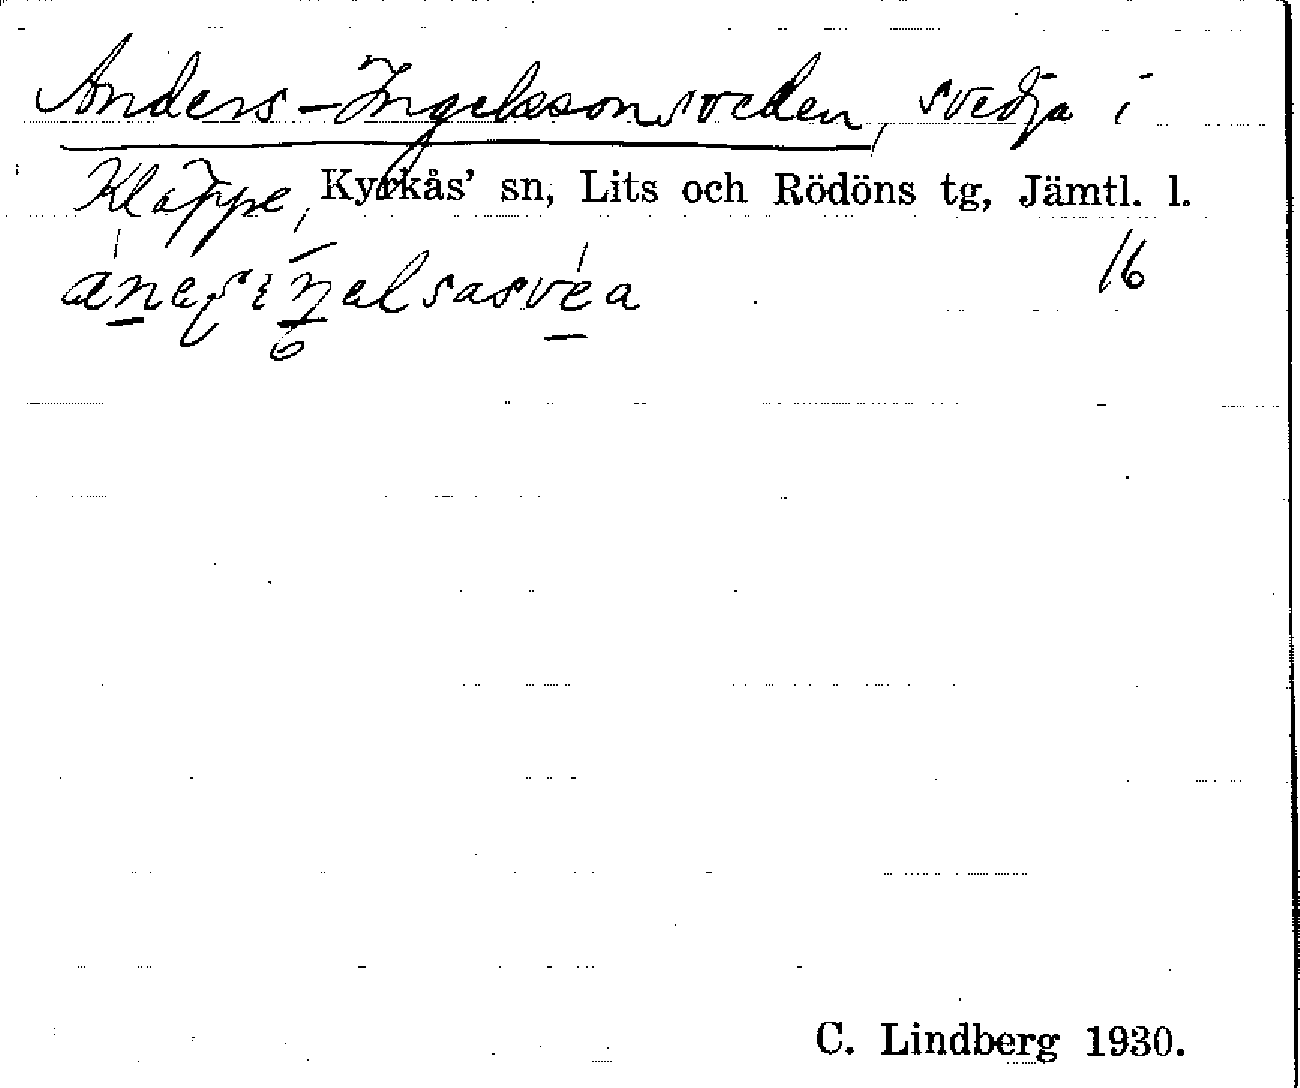 Anders-Ingelssonsveden, svedja i
Kläppe, Kyrkås' sn, Lits och Rödöns tg, Jämtl. l.
16
C. Lindberg 1930.